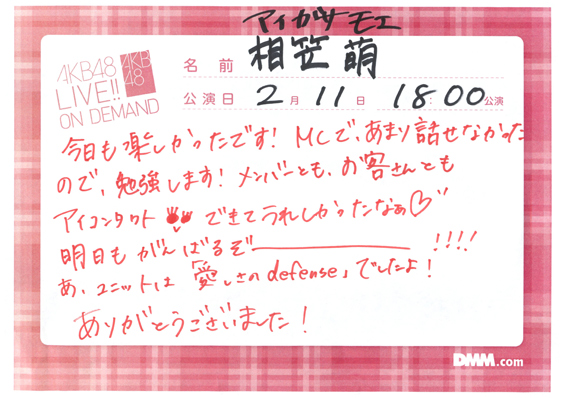 アイガサ モエ
AKB48
LIVE!!
ON DEMAND
AKB
48
名前 相笠 萌
公演日 2月11日 18:00公演
今日も楽しかったです! MCで、あまり話せなかった
ので、勉強します! メンバーとも、お客さんとも
アイコンタクト できてうれしかったなぁ♡
明日もがんばるぞ――――― !!!!
あ、ユニットは「愛しさのdefense」でしたよ!
ありがとうございました!
DMM.com